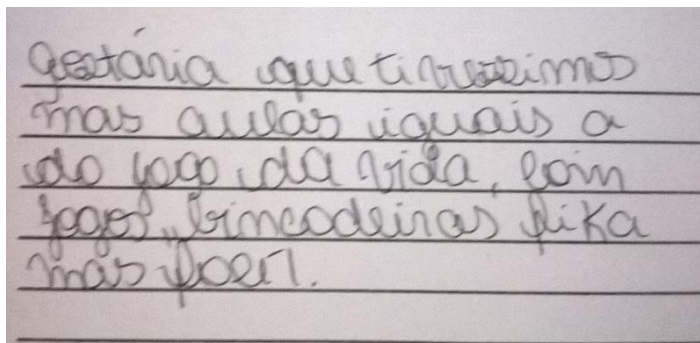 gostária que tivessimos
mas aulas iguais a
do jogo da vida, com
jogos, brincadeiras fika
mas facil.